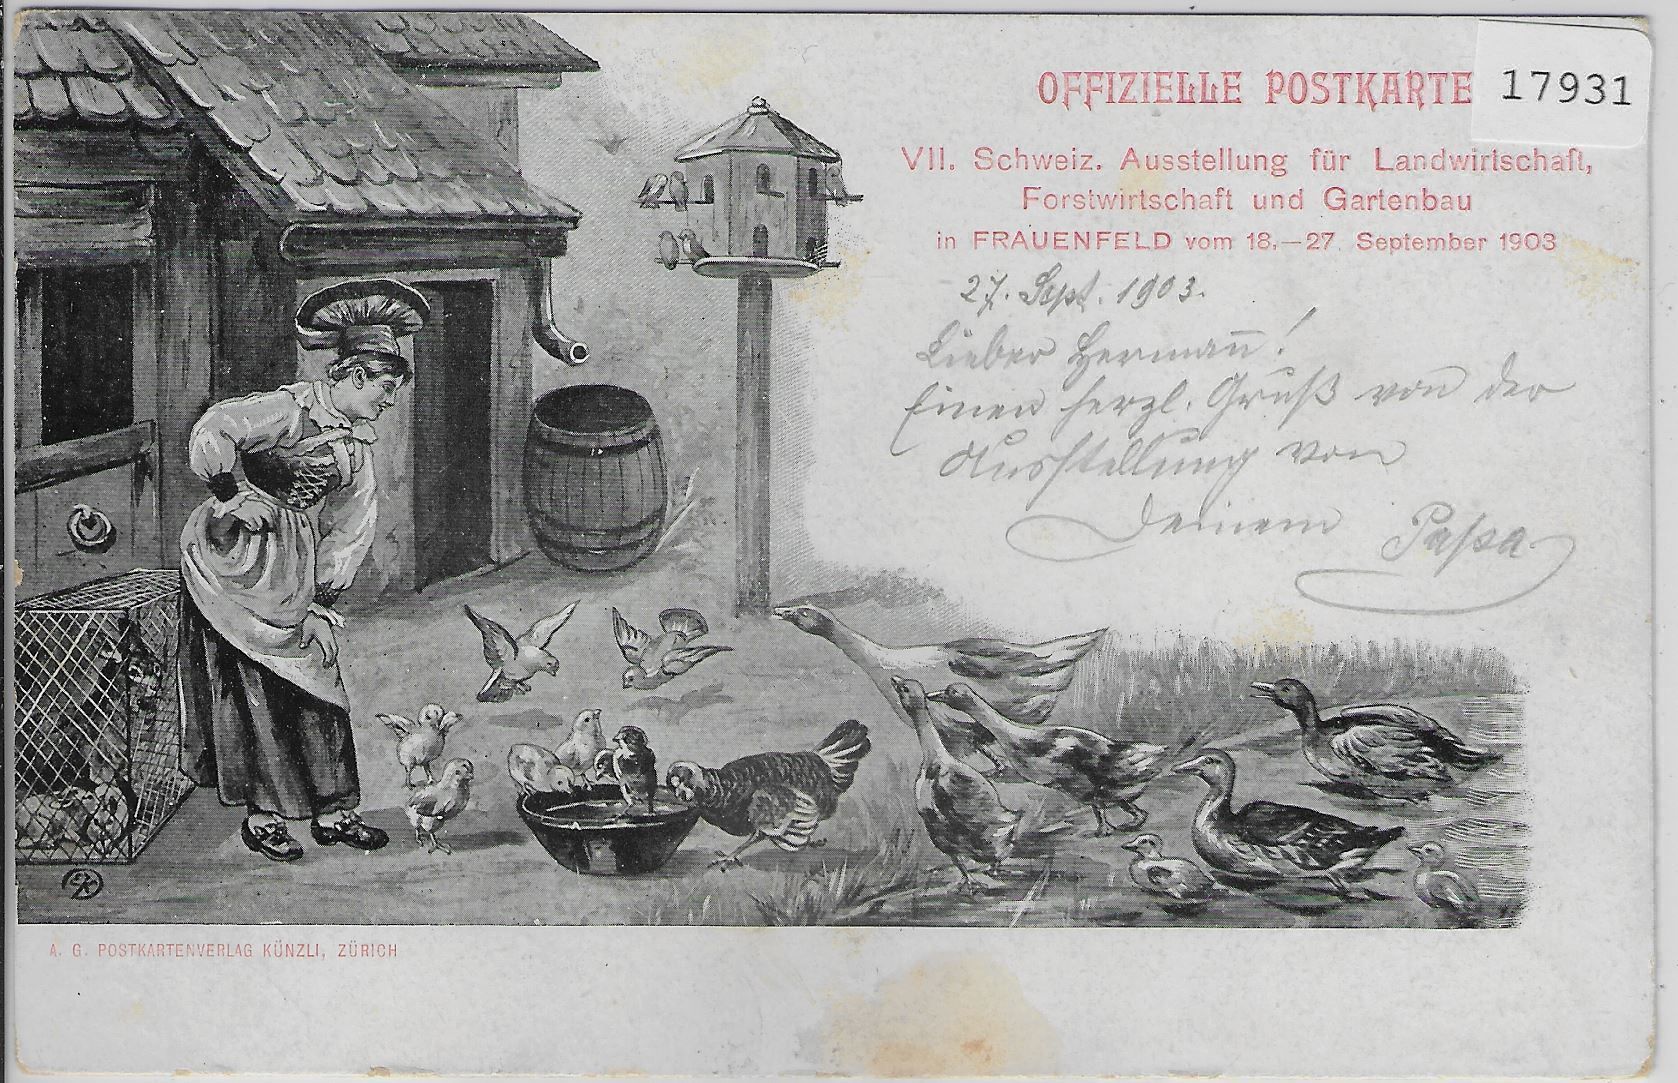 OFFIZIELLE POSTKARTE
17931
VII. Schweiz. Ausstellung für Landwirtschaft,
Forstwirtschaft und Gartenbau
in FRAUENFELD vom 18.—27. September 1903
27. Sept. 1903.
Lieber Hermann!
Einen herzl. Gruß von der
Ausstellung von
Deinem Papa
EK
A. G. POSTKARTENVERLAG KÜNZLI, ZÜRICH